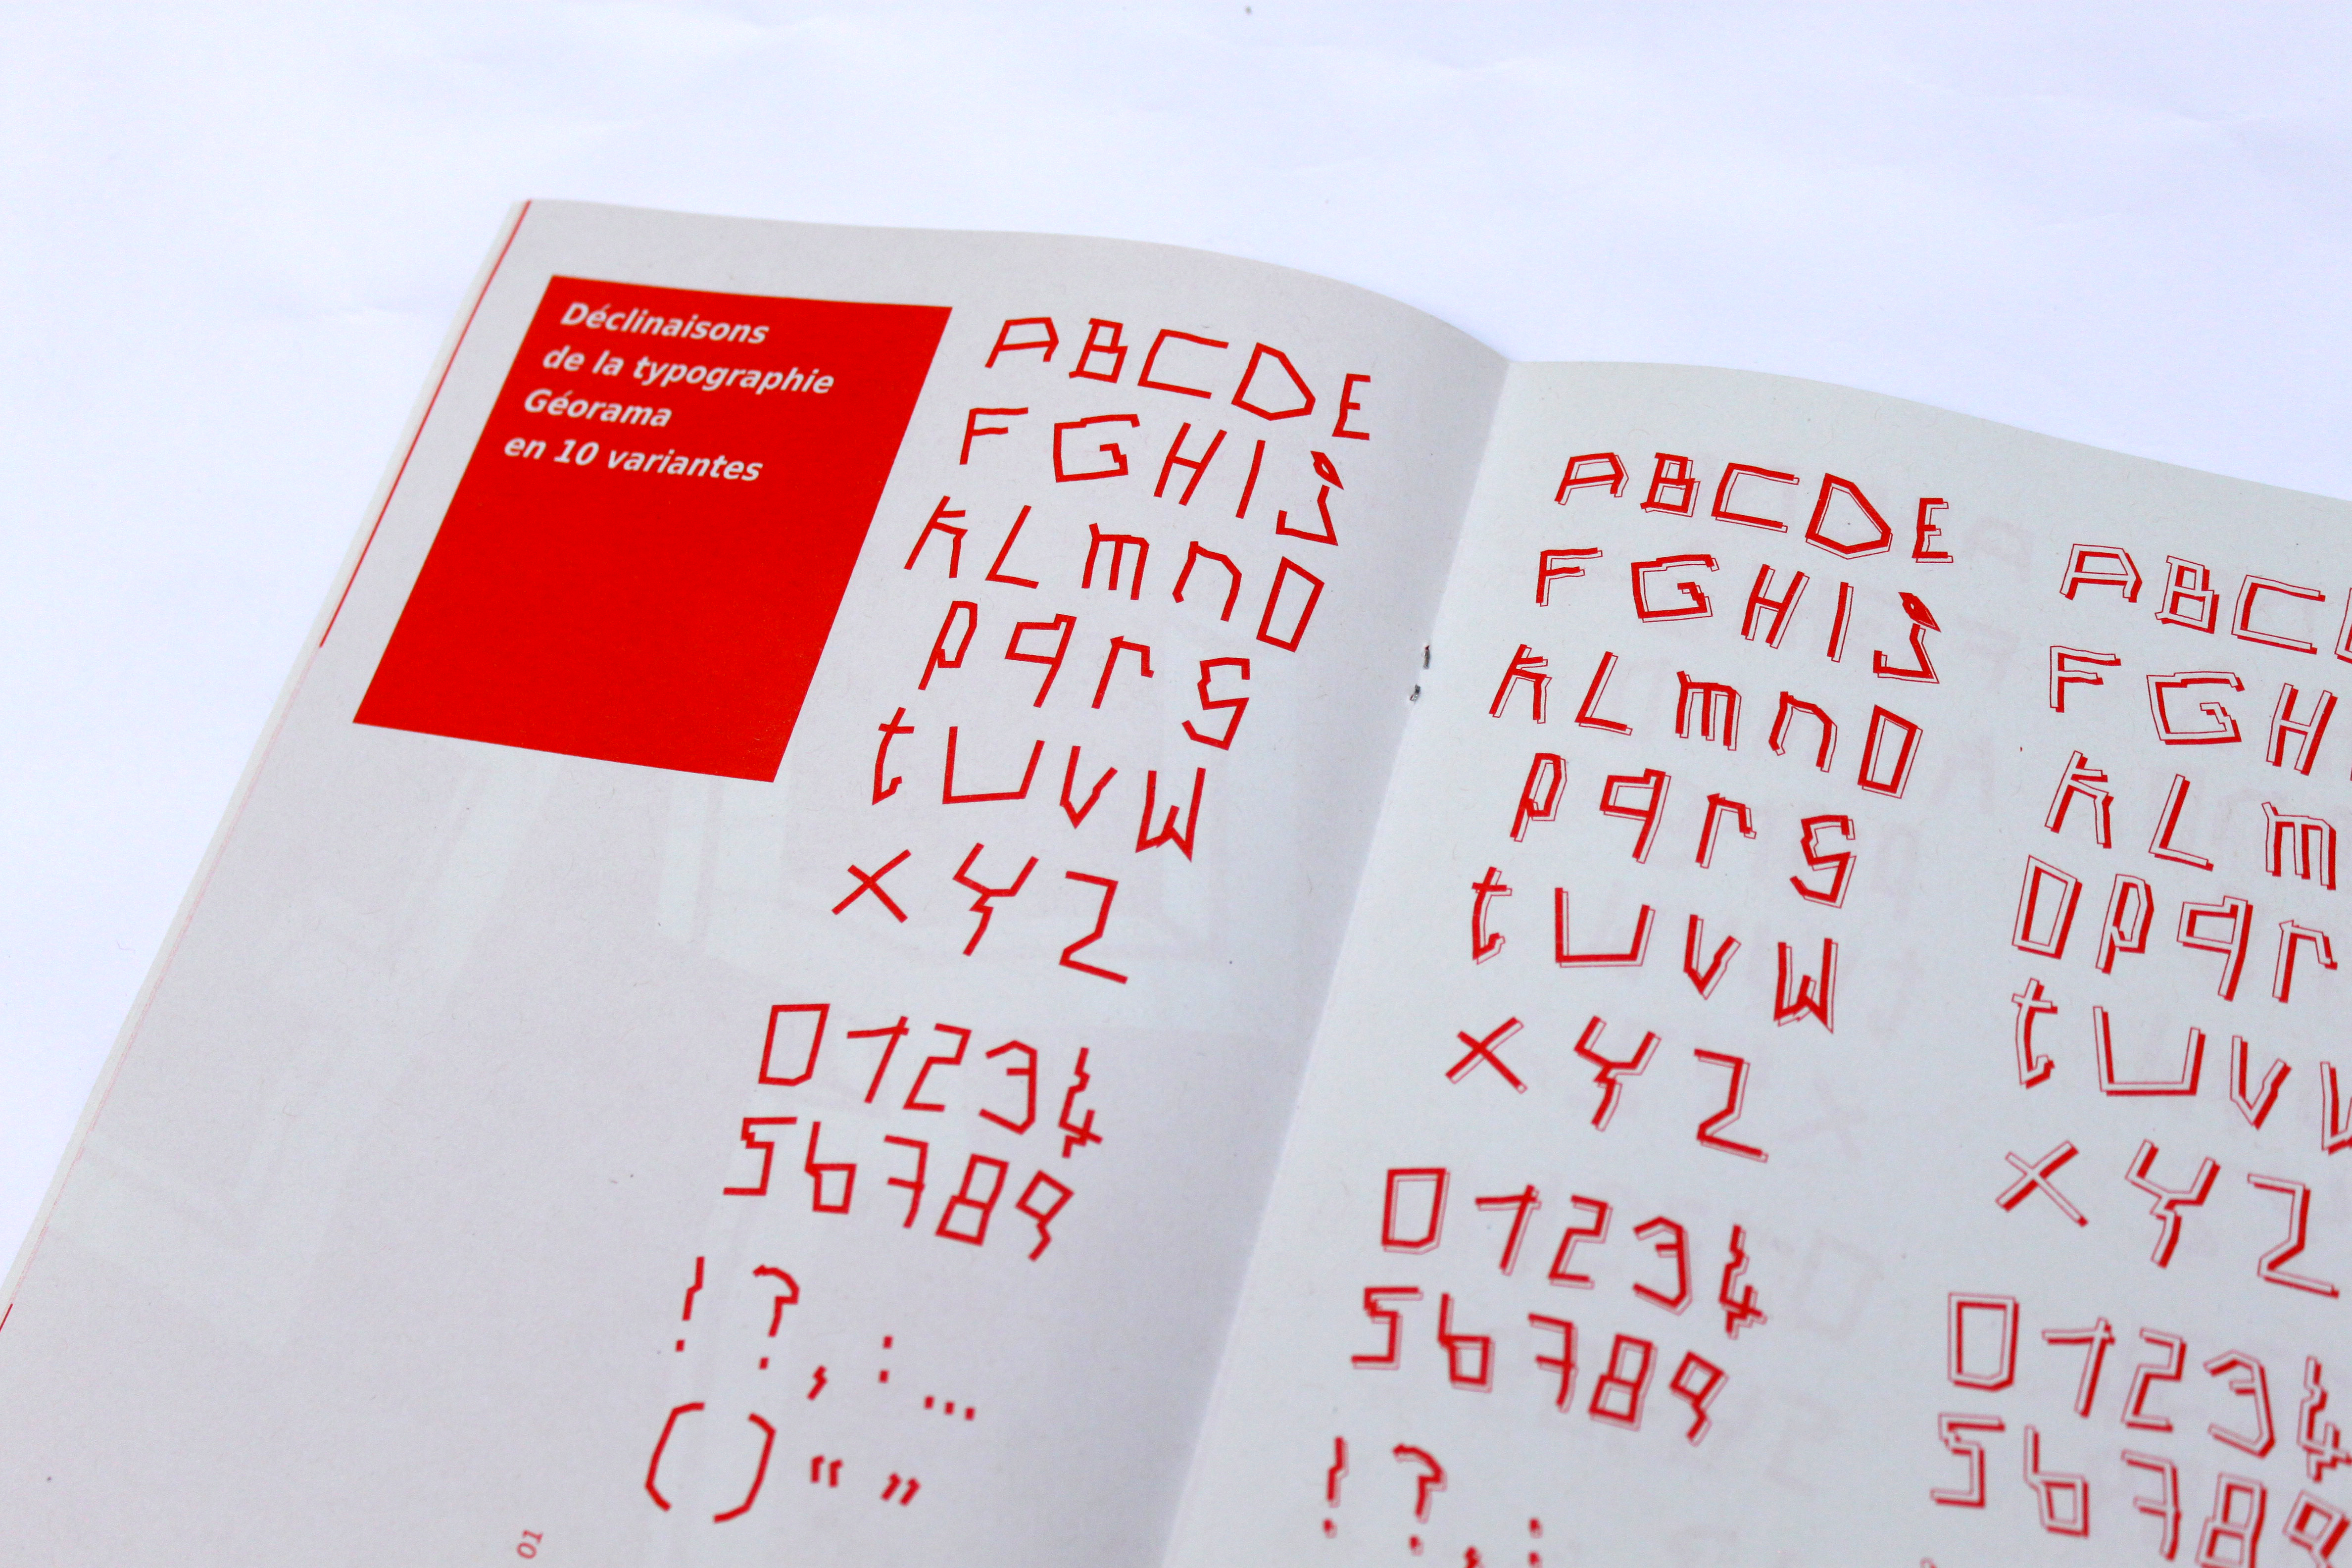 Déclinaisons
de la typographie
Géorama
en 10 variantes
A B C D E
F G H I J
k L m n O
p q r s
t U v W
x Y Z
0 1 2 3 4
5 6 7 8 9
! ? , : ...
( ) “ ”
01
A B C D E
F G H I J
k L m n O
p q r s
t U v W
x Y Z
0 1 2 3 4
5 6 7 8 9
! ? , :
A B C
F G H
k L m
O p q r
t U v
x Y Z
0 1 2 3 4
5 6 7 8 9